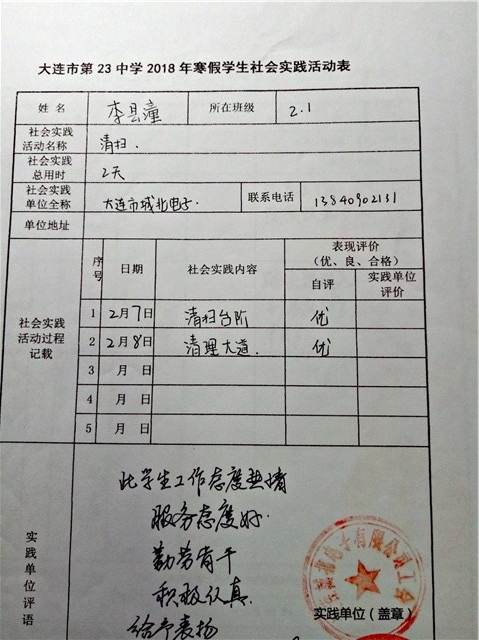 大连市第 23 中学 2018 年寒假学生社会实践活动表
姓 名 李昙潼 所在班级 2.1
社会实践活动名称 清扫.
社会实践总用时 2天
社会实践单位全称 大连市城北电子. 联系电话 13840902131
单位地址
社会实践活动过程记载
序号 日期 社会实践内容 表现评价(优、良、合格)
自评 实践单位评价
1 2月7日 清扫台阶 优
2 2月8日 清理大道. 优
3 月 日
4 月 日
5 月 日
实践单位评语
此学生工作态度热情
服务态度好.
勤劳肯干
积极认真.
给予表扬
有限公司工会
实践单位(盖章)